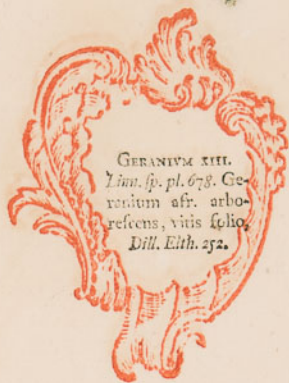 GERANIVM XIII.
Linn. sp. pl. 678. Ge-
renium afr. arbo-
rescens, vitis folio,
Dill. Elth. 252.